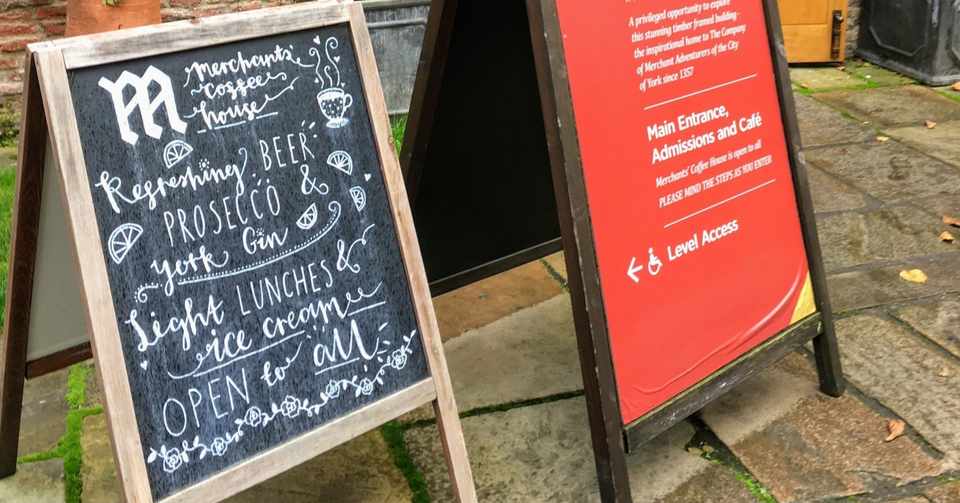 M
merchants'
coffee
house
Refreshing BEER
PROSECCO &
York Gin
Light LUNCHES &
ice cream
OPEN to all
A privileged opportunity to explore
this stunning timber framed building -
the inspirational home to The Company
of Merchant Adventurers of the City
of York since 1357
Main Entrance,
Admissions and Café
Merchants' Coffee House is open to all
PLEASE MIND THE STEPS AS YOU ENTER
Level Access